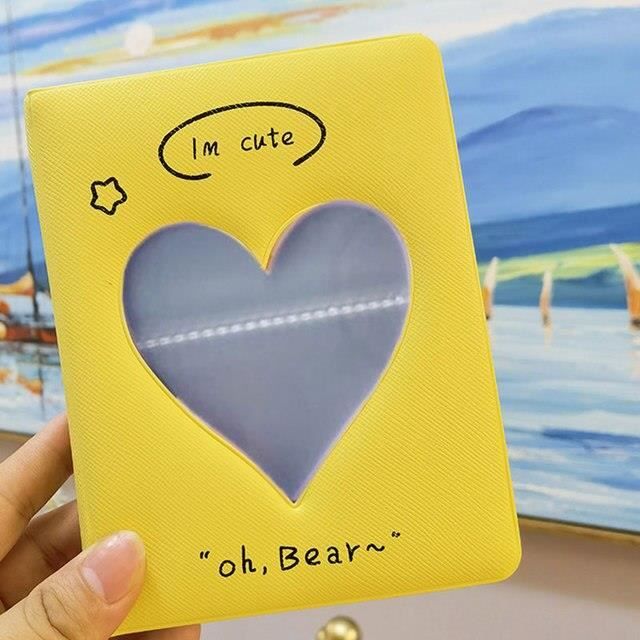 Im cute
"oh, Bear~"